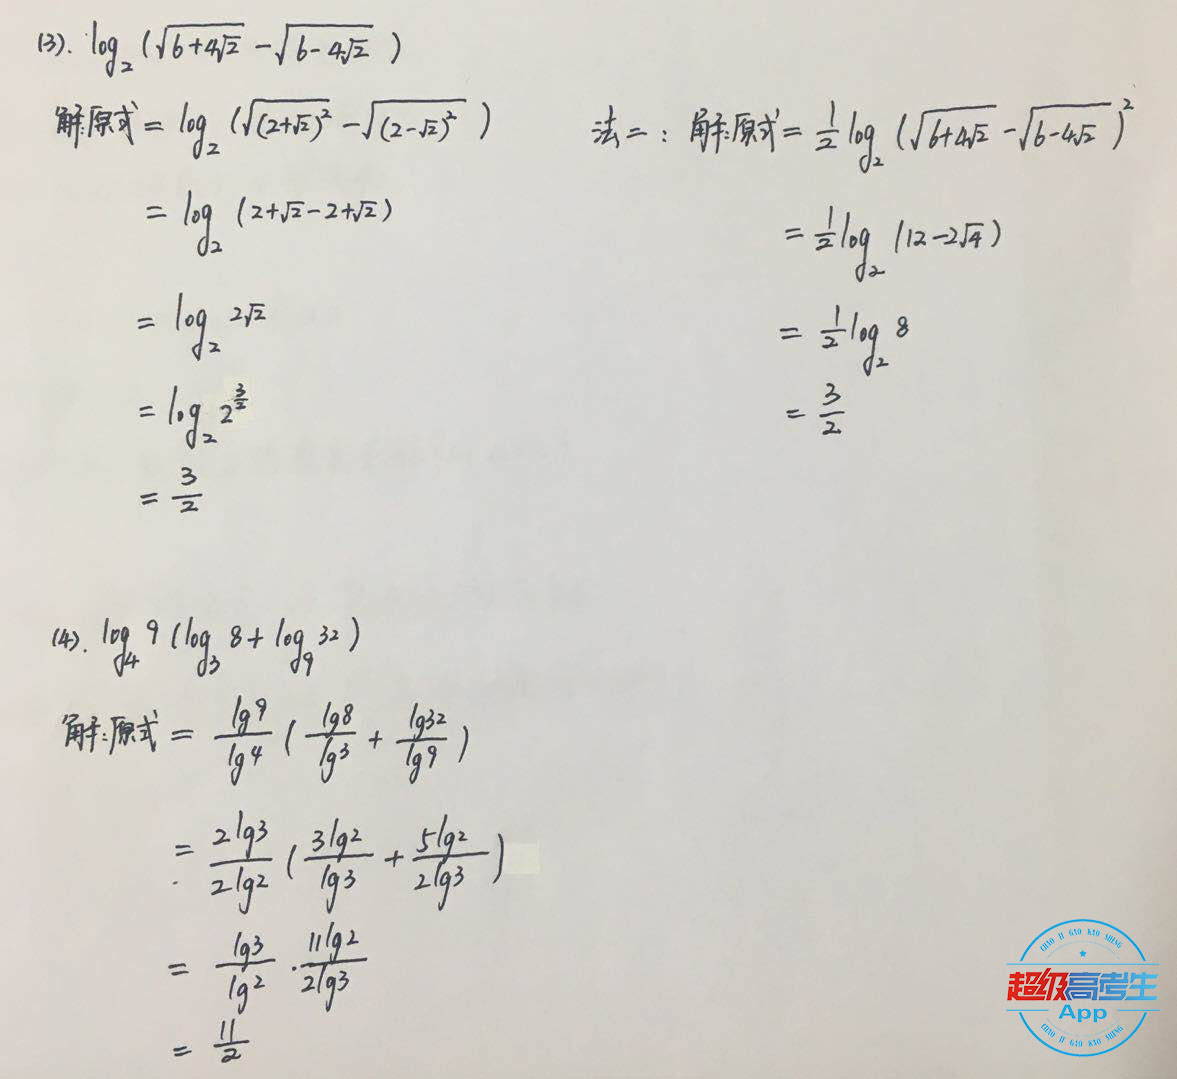 (3). log₂(√(6+4√2) - √(6-4√2))
解:原式 = log₂(√((2+√2)²) - √((2-√2)²))
= log₂(2+√2-2+√2)
= log₂ 2√2
= log₂ 2^(3/2)
= 3/2
法二: 解:原式 = 1/2 log₂(√(6+4√2) - √(6-4√2))²
= 1/2 log₂(12-2√4)
= 1/2 log₂ 8
= 3/2
(4). log₄ 9 (log₃ 8 + log₉ 32)
解:原式 = lg9/lg4 (lg8/lg3 + lg32/lg9)
= 2lg3/2lg2 (3lg2/lg3 + 5lg2/2lg3)
= lg3/lg2 · 11lg2/2lg3
= 11/2
CHAO JI GAO KAO SHENG
超级高考生
App
CHAO JI GAO KAO SHENG